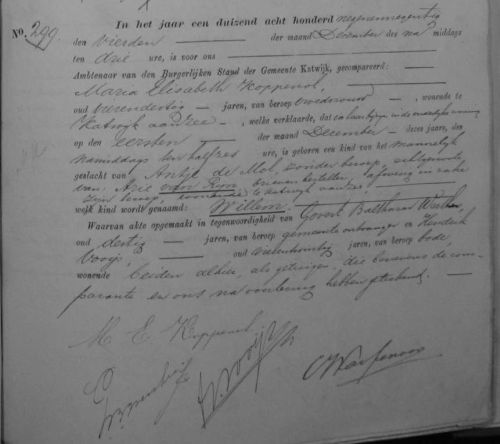 No. 299. In het jaar een duizend acht honderd negenennegentig
den vierden der maand December des na middags
ten drie ure, is voor ons
Ambtenaar van den Burgerlijken Stand der Gemeente Katwijk, gecompareerd:
Maria Elisabeth Koppenol,
oud jaren, van beroep vroedvrouw, wonende te
Katwijk aan zee, welke verklaarde, dat in hare tegenwoordigheid
op den eersten der maand December dezes jaars, des
namiddags ten half zes ure, is geboren een kind van het mannelijk
geslacht van Antje de Mol, zonder beroep, echtgenoote
van Arie van Rijn, brievenbesteller, afwezig in zake
zijn beroep, wonende te Katwijk aan zee
welk kind wordt genaamd: Willem.
Waarvan akte opgemaakt in tegenwoordigheid van Govert Balthasar
oud dertig jaren, van beroep gemeente ontvanger en Hendrik
Vooijs, oud jaren, van beroep bode,
wonende beiden alhier, als getuigen, die benevens de com-
parante en ons na voorlezing hebben geteekend.
M. E. Koppenol